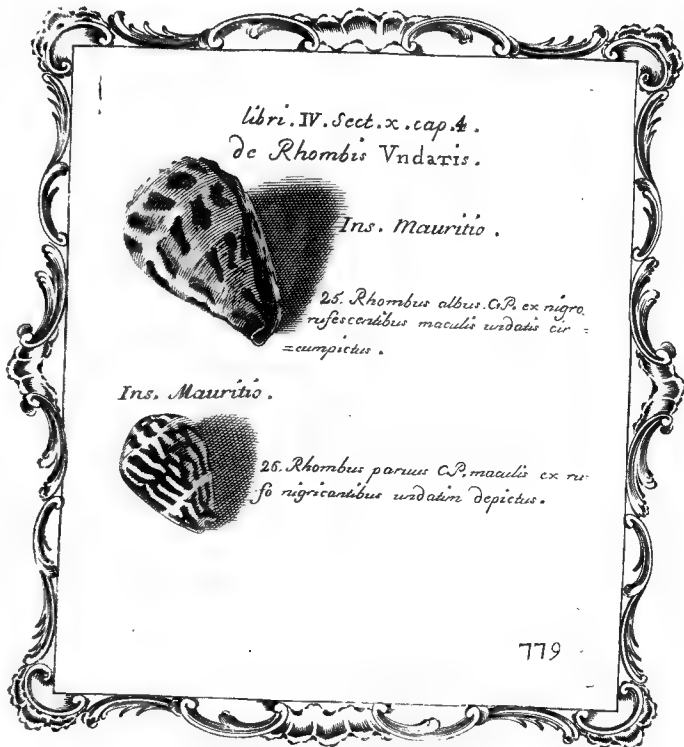 libri.IV.Sect.x.cap.4.
de Rhombis Vndatis.
Ins. Mauritio.
25. Rhombus albus.C.P. ex nigro
rufescentibus maculis undatis cir=
=cumpictus.
Ins. Mauritio.
26. Rhombus paruus C.P. maculis ex ru-
fo nigricantibus undatim depictus.
779